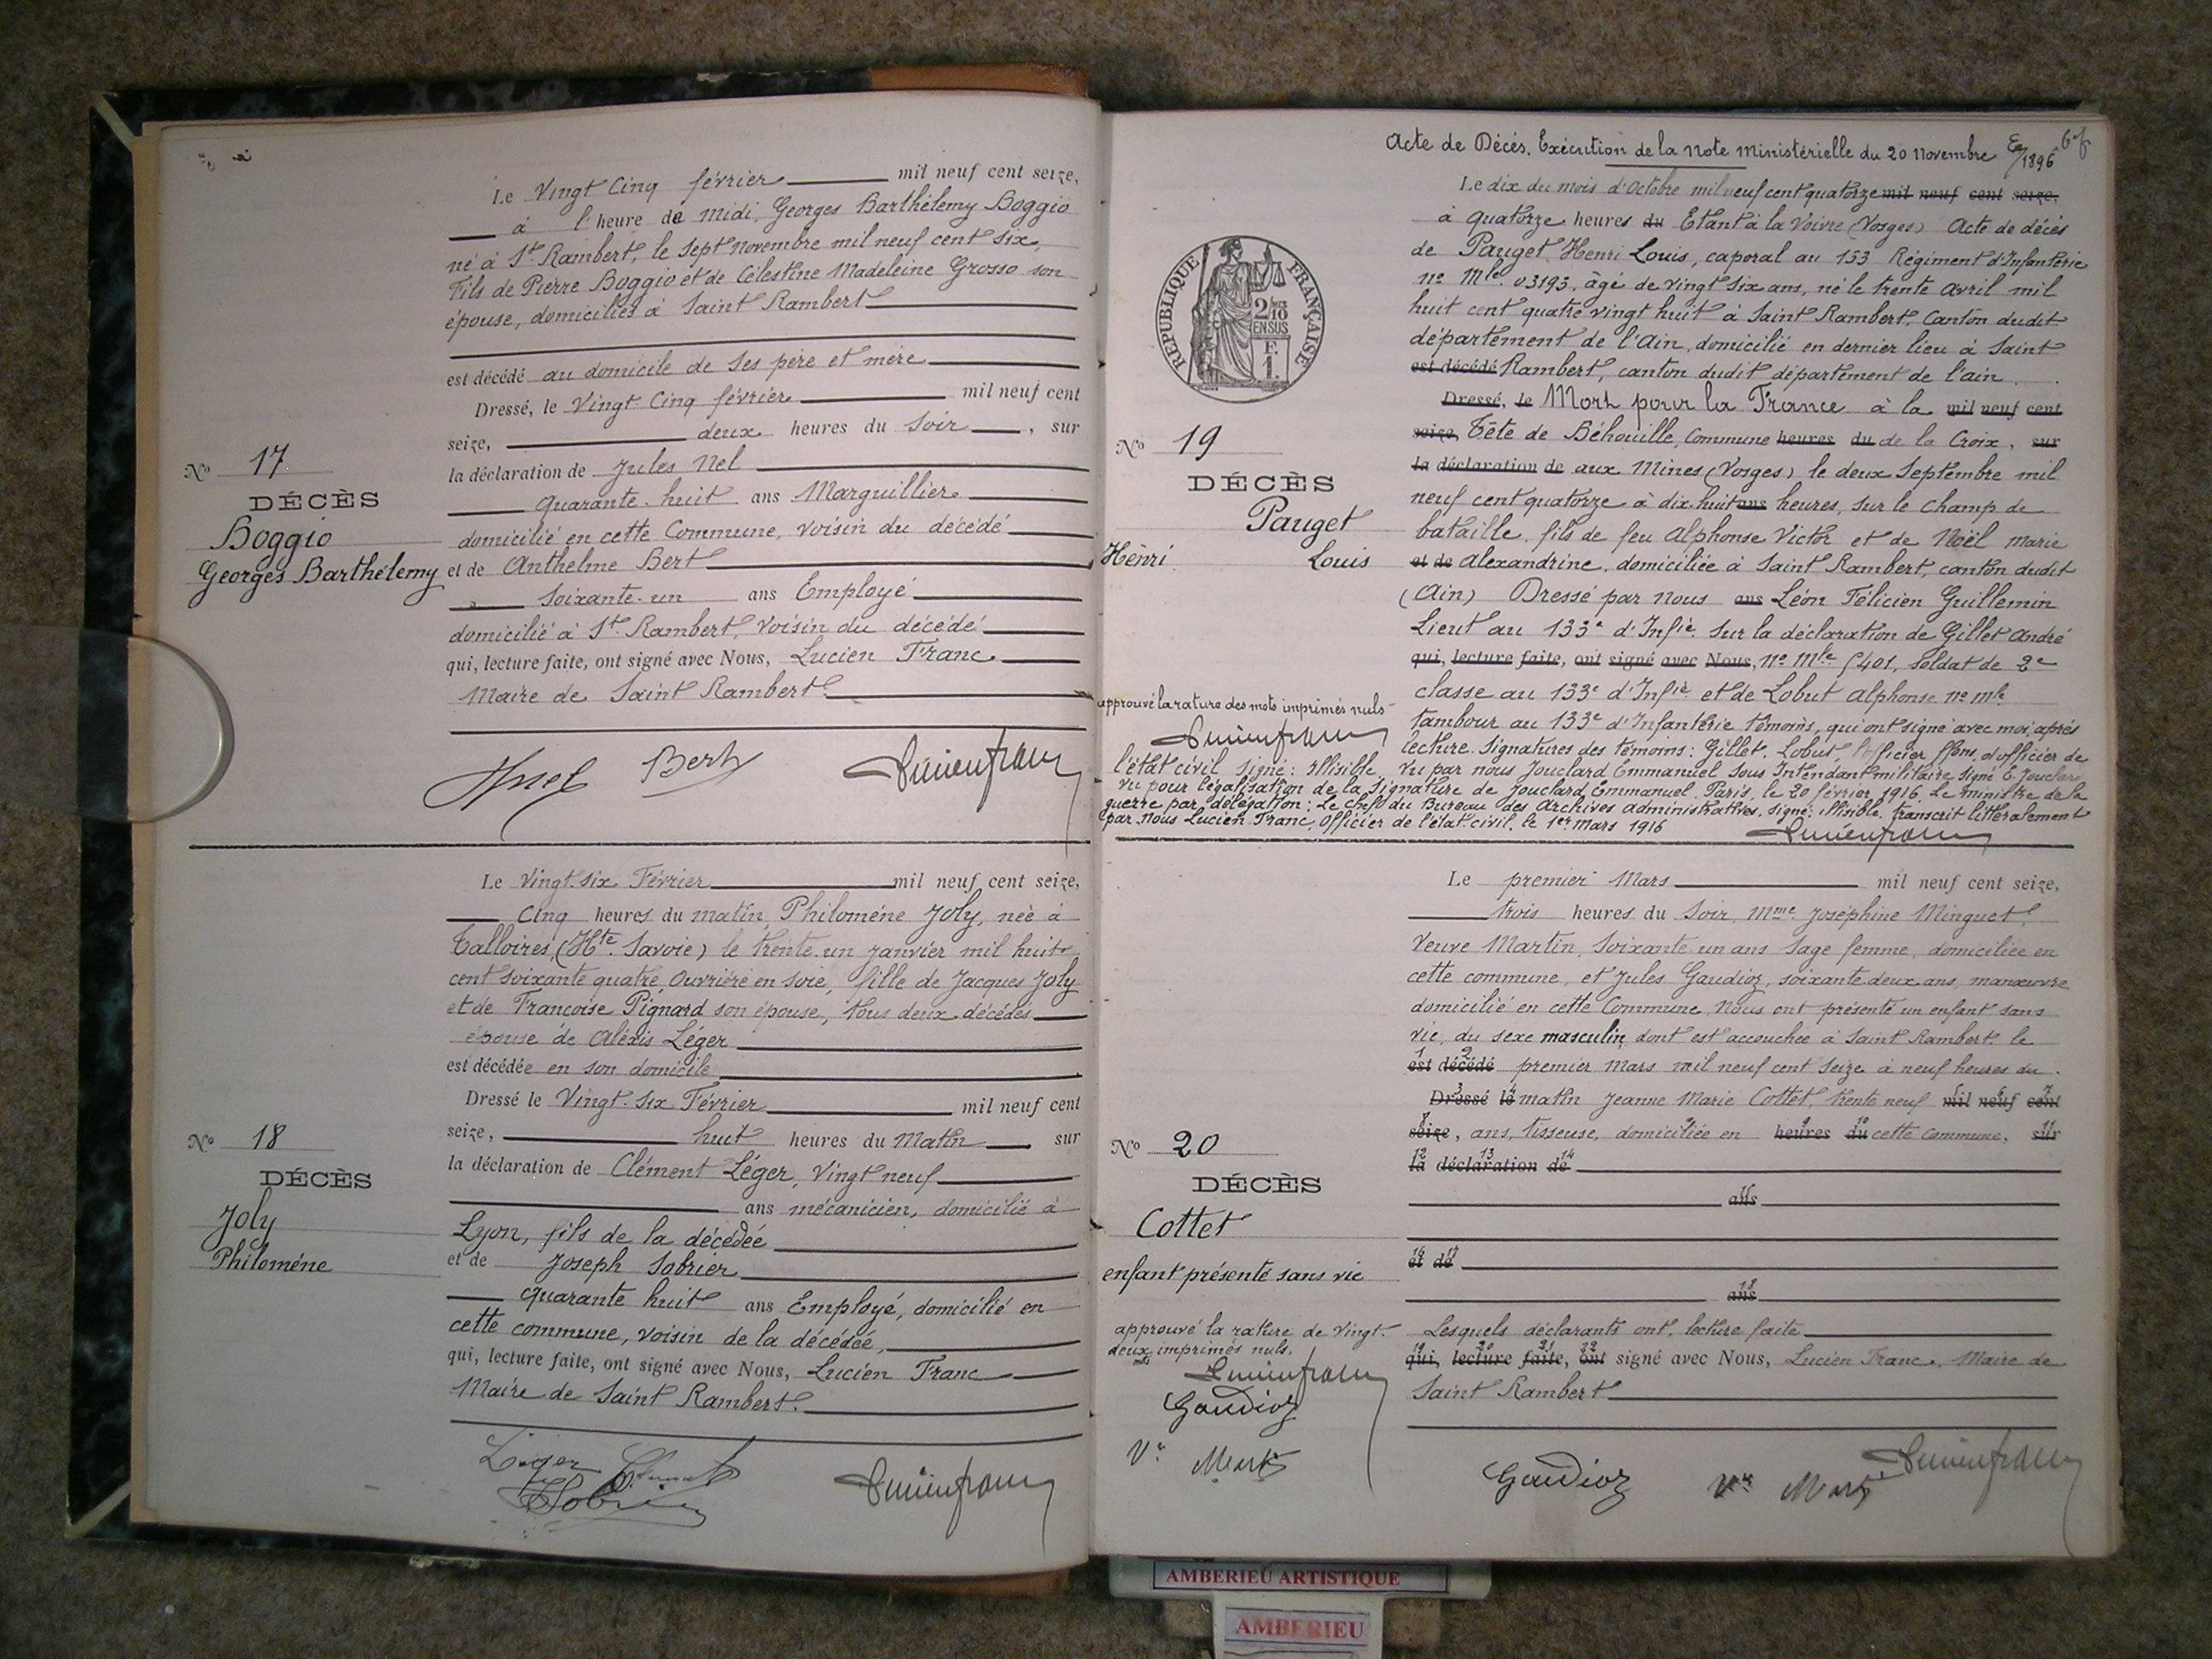 Le Vingt Cinq février mil neuf cent seize,
à l'heure de midi, Georges Barthélemy Boggio
né à St Rambert, le sept novembre mil neuf cent six,
fils de Pierre Boggio et de Célestine Madeleine Grosso son
épouse, domiciliés à Saint Rambert
est décédé au domicile de ses père et mère
Dressé, le Vingt Cinq février mil neuf cent
seize, deux heures du soir, sur
la déclaration de Jules Nel
quarante-huit ans Marguillier
domicilié en cette Commune, voisin du décédé
et de Anthelme Bert
soixante-un ans Employé
domicilié à St Rambert, voisin du décédé
qui, lecture faite, ont signé avec Nous, Lucien Franc
Maire de Saint Rambert
No 17
DÉCÈS
Boggio
Georges Barthélemy
Bert
Le Vingt-six Février mil neuf cent seize,
Cinq heures du matin, Philoméne Joly, née à
Talloires, (Hte Savoie) le trente-un janvier mil huit
cent soixante quatre, ouvrière en soie, fille de Jacques Joly
et de Francoise Pignard son épouse, tous deux décédés
épouse de Aléxis Léger
est décédée en son domicile
Dressé le Vingt-six Février mil neuf cent
seize, huit heures du Matin sur
la déclaration de Clément Léger, vingt neuf
ans mécanicien, domicilié à
Lyon, fils de la décédée
et de Joseph Sobrier
quarante huit ans Employé, domicilié en
cette commune, voisin de la décédée,
qui, lecture faite, ont signé avec Nous, Lucien Franc
Maire de Saint Rambert.
No 18
DÉCÈS
Joly
Philoméne
Acte de Décès. Exécution de la note Ministérielle du 20 Novembre 1896
RÉPUBLIQUE FRANÇAISE
2/10
EN SUS
F.
1.
Le dix du mois d'Octobre mil neuf cent quatorze mil neuf cent seize,
à quatorze heures du Etant à la Voivre (Vosges) Acte de décès
de Pauget Henri Louis, caporal au 133 Régiment d'Infanterie
no Mle 03193, âgé de vingt six ans, né le trente Avril mil
huit cent quatre vingt huit à Saint Rambert, Canton dudit
département de l'Ain, domicilié en dernier lieu à Saint
est décédé Rambert, canton dudit département de l'ain.
Dressé, le Mort pour la France à la mil neuf cent
seize, Tête de Béhouille, Commune heures du de la Croix, sur
la déclaration de aux Mines (Vosges) le deux Septembre mil
neuf cent quatorze à dix-huit ans heures, sur le champ de
bataille, fils de feu Alphonse Victor et de Noël Marie
et de Alexandrine, domiciliée à Saint Rambert, canton dudit
(Ain) Dressé par nous ans Léon Félicien Guillemin
Lieut au 133e d'Infie Sur la déclaration de Gillet André
qui, lecture faite, ont signé avec Nous, no Mle 5401, soldat de 2e
classe au 133e d'Infie et de Lobut Alphonse no mle
tambour au 133e d'Infanterie témoins, qui ont signé avec moi, après
lecture. Signatures des témoins: Gillet, Lobut, l'officier ffons d'officier de
l'état civil signé: illisible. Vu par nous Jouclard Emmanuel Sous Intendant militaire signé E. Jouclard
Vu pour légalisation de la signature de Jouclard Emmanuel. Paris, le 20 février 1916. Le ministre de la
guerre par délégation: Le chef du Bureau des Archives administratives. signé: illisible. transcrit littéralement
par nous Lucien Franc, officier de l'état civil, le 1er mars 1916
No 19
DÉCÈS
Pauget
Henri Louis
approuvé la rature des mots imprimés nuls
Lucien franc
Le premier Mars mil neuf cent seize,
trois heures du soir, Mme Joséphine Minguet,
Veuve Martin, soixante-un ans sage femme, domiciliée en
cette commune, et Jules Gaudioz, soixante deux ans, manœuvre
domicilié en cette Commune, Nous ont présenté un enfant sans
vie, du sexe masculin, dont est accouchée à Saint Rambert le
est décédé premier Mars mil neuf cent seize à neuf heures du
Dressé le matin Jeanne Marie Cottet, trente neuf mil neuf cent
seize, ans, tisseuse, domiciliée en heures du cette commune, sur
la déclaration de
ans
et de
ans
Lesquels déclarants ont, lecture faite
qui, lecture faite, ont signé avec Nous, Lucien Franc, Maire de
Saint Rambert
No 20
DÉCÈS
Cottet
enfant présenté sans vie
approuvé la rature de Vingt-
deux mots imprimés nuls.
Lucien franc
Gaudioz
Ve Martin
Gaudioz Ve Martin Lucien franc
AMBERIEU ARTISTIQUE
AMBERIEU